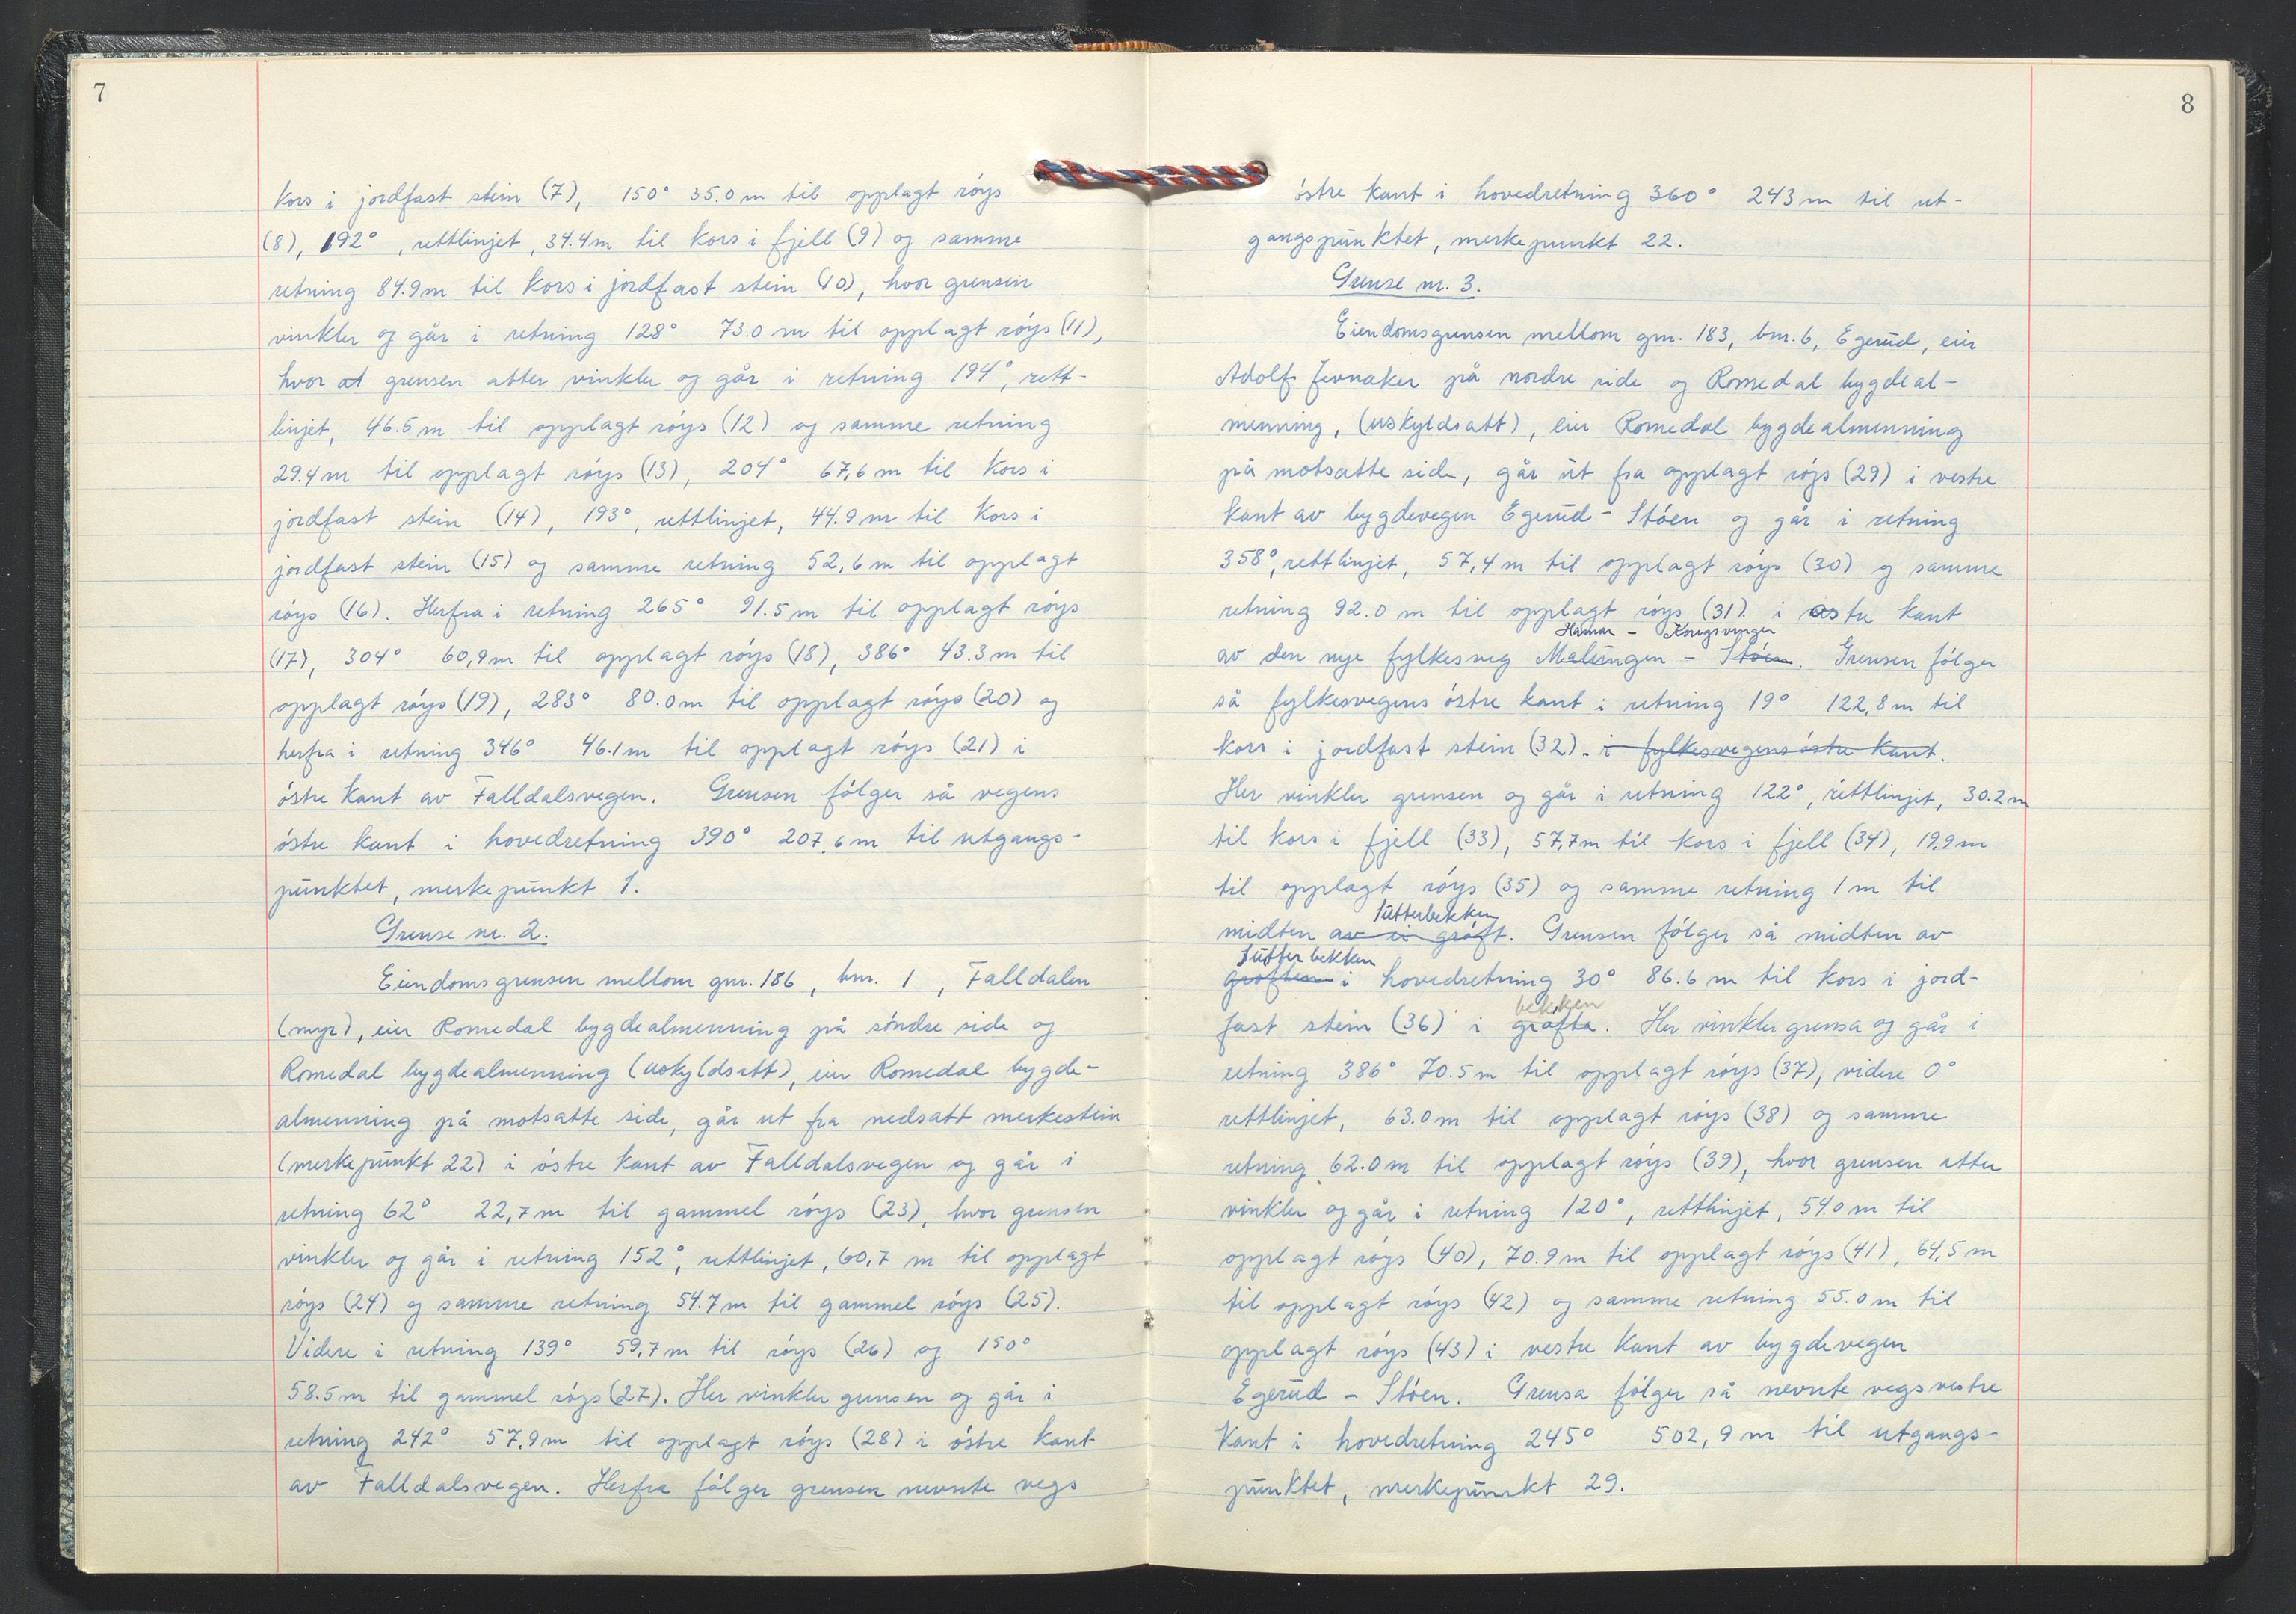 7
kors i jordfast stein (7), 150° 35.0 m til opplagt röys
(8), 192°, rettlinjet, 34.4 m til kors i fjell (9) og samme
retning 84.9 m til kors i jordfast stein (10), hvor grensen
vinkler og går i retning 128° 73.0 m til opplagt röys (11),
hvor at grensen atter vinkler og går i retning 194°, rett-
linjet, 46.5 m til opplagt röys (12) og samme retning
29.4 m til opplagt röys (13), 204° 67,6 m til kors i
jordfast stein (14), 193°, rettlinjet, 44.9 m til kors i
jordfast stein (15) og samme retning 52,6 m til opplagt
röys (16). Herfra i retning 265° 91.5 m til opplagt röys
(17), 304° 60,9 m til opplagt röys (18), 386° 43.3 m til
opplagt röys (19), 283° 80.0 m til opplagt röys (20) og
herfra i retning 346° 46.1 m til opplagt röys (21) i
östre kant av Falldalsvegen. Grensen fölger så vegens
östre kant i hovedretning 390° 207,6 m til utgangs-
punktet, merkepunkt 1.
Grense nr. 2.
Eiendomsgrensen mellom gnr. 186, bnr. 1, Falldalen
(myr), eier Romedal bygdealmenning på söndre side og
Romedal bygdealmenning (uskyldsatt), eier Romedal bygde-
almenning på motsatte side, går ut fra nedsatt merkestein
(merkepunkt 22) i östre kant av Falldalsvegen og går i
retning 62° 22,7 m til gammel röys (23), hvor grensen
vinkler og går i retning 152°, rettlinjet, 60,7 m til opplagt
röys (24) og samme retning 54.7 m til gammel röys (25).
Videre i retning 139° 59,7 m til röys (26) og 150°
58.5 m til gammel röys (27). Her vinkler grensen og går i
retning 242° 57.9 m til opplagt röys (28) i östre kant
av Falldalsvegen. Herfra fölger grensen nevnte vegs
8
östre kant i hovedretning 360° 243 m til ut-
gangspunktet, merkepunkt 22.
Grense nr. 3.
Eiendomsgrensen mellom gnr. 183, bnr. 6, Egerud, eier
Adolf Jevnaker på nordre side og Romedal bygdeal-
menning, (uskyldsatt), eier Romedal bygdealmenning
på motsatte side, går ut fra opplagt röys (29) i vestre
kant av bygdevegen Egerud - Stöen og går i retning
358°, rettlinjet, 57,4 m til opplagt röys (30) og samme
retning 92.0 m til opplagt röys (31) i östre kant
Hamar - Kongsvinger
av den nye fylkesveg Malungen - Stöen. Grensen fölger
så fylkesvegens östre kant i retning 19° 122,8 m til
kors i jordfast stein (32). i fylkesvegens östre kant.
Her vinkler grensen og går i retning 122°, rettlinjet, 30.2 m
til kors i fjell (33), 57,7 m til kors i fjell (34), 19.9 m
til opplagt röys (35) og samme retning 1 m til
Sutterbekken
midten av ei gröft. Grensen fölger så midten av
Sutterbekken
gröften i hovedretning 30° 86.6 m til kors i jord-
bekken
fast stein (36) i gröfta. Her vinkler grensa og går i
retning 386° 70.5 m til opplagt röys (37), videre 0°
rettlinjet, 63.0 m til opplagt röys (38) og samme
retning 62.0 m til opplagt röys (39), hvor grensen atter
vinkler og går i retning 120°, rettlinjet, 54.0 m til
opplagt röys (40), 70.9 m til opplagt röys (41), 64,5 m
til opplagt röys (42) og samme retning 55.0 m til
opplagt röys (43) i vestre kant av bygdevegen
Egerud - Stöen. Grensa fölger så nevnte vegs vestre
kant i hovedretning 245° 502,9 m til utgangs-
punktet, merkepunkt 29.